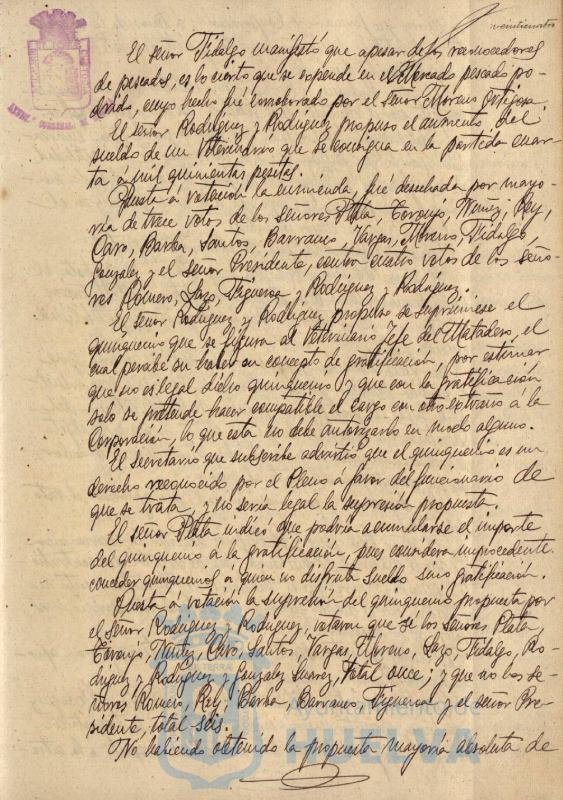 veinticuatro
El señor Fidalgo manifestó que apesar de los reconocedores
de pescados, es lo cierto que se expende en el Mercado pescado po-
drido, cuyo hecho fué corroborado por el señor Moreno Ortigosa.
El señor Rodríguez y Rodríguez propuso el aumento del
sueldo de un Veterinario que se consigna en la partida cuar-
ta á mil quinientas pesetas.
Puesta á votación la enmienda, fué desechada por mayo-
ría de trece votos de los señores Plata, Coronjo, Núñez, Rey,
Caro, Barba, Santos, Barranco, Vargas, Moreno, Fidalgo,
González y el señor Presidente, contra cuatro votos de los seño-
res Romero, Lazo, Figueroa y Rodríguez y Rodríguez.
El señor Rodríguez y Rodríguez propuso se suprimiese el
quinquenio que se figura al Veterinario Jefe del Matadero, el
cual percibe su haber en concepto de gratificación, por estimar
que no es legal dicho quinquenio y que con la gratificación
solo se pretende hacer compatible el cargo con otro extraño á la
Corporación, lo que esta no debe autorizarlo en modo alguno.
El Secretario que subscribe advirtió que el quinquenio es un
derecho reconocido por el Pleno á favor del funcionario de
que se trata, y no sería legal la supresión propuesta.
El señor Plata indicó que podría acumularse el importe
del quinquenio á la gratificación, pues considera improcedente
conceder quinquenios á quien no disfruta sueldo sino gratificación.
Puesta á votación la supresión del quinquenio propuesta por
el señor Rodríguez y Rodríguez, votaron que sí los señores Plata,
Coronjo, Núñez, Caro, Santos, Vargas, Moreno, Lazo, Fidalgo, Ro-
dríguez y Rodríguez y González Suárez, total once; y que no los se-
ñores Romero, Rey, Barba, Barranco, Figueroa y el señor Pre-
sidente, total seis.
No habiendo obtenido la propuesta mayoría absoluta de
Ayuntamiento de
HUELVA